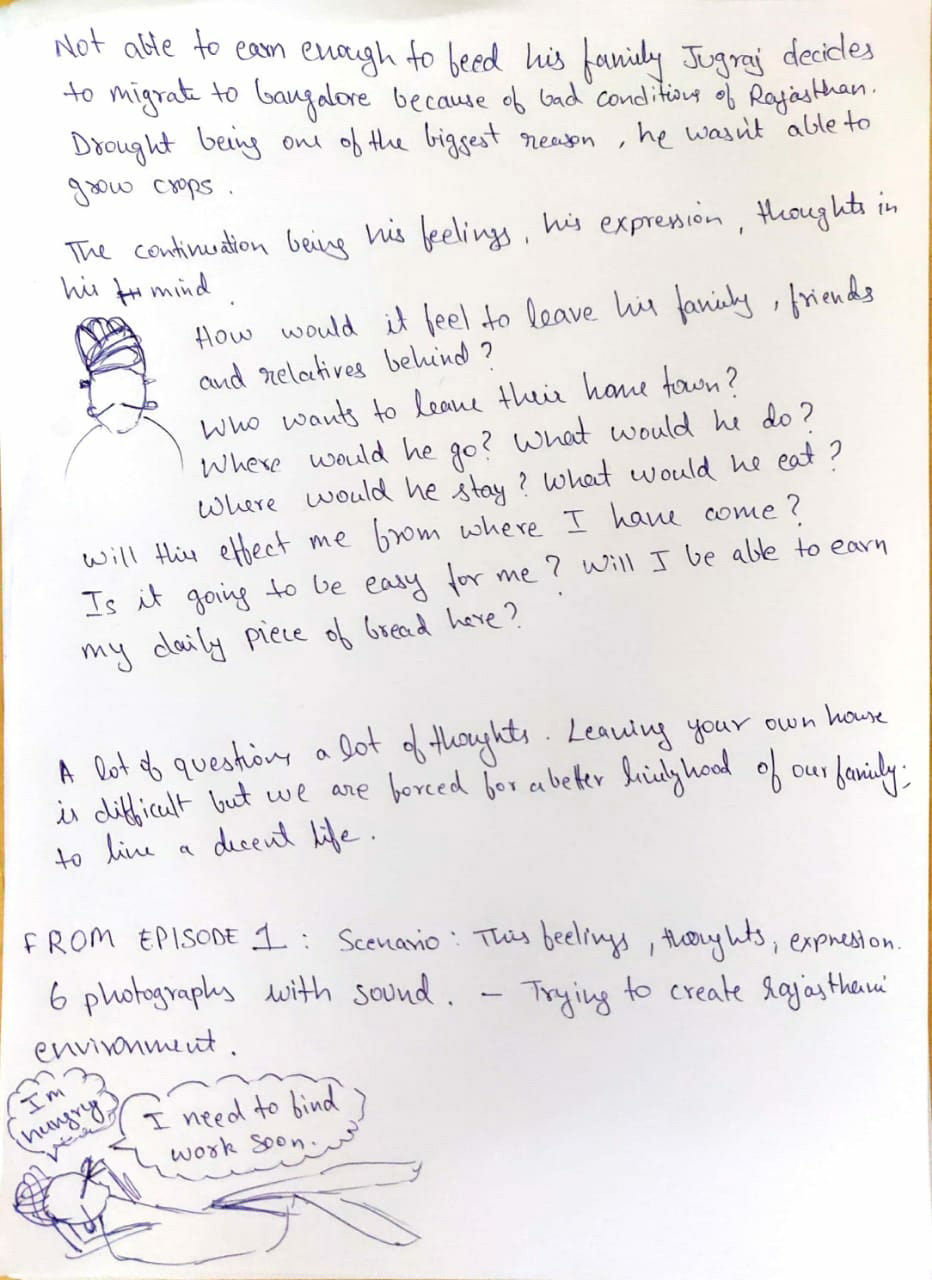 Not able to earn enough to feed his family Jugraj decides
to migrate to bangalore because of bad conditions of Rajasthan.
Drought being one of the biggest reason, he wasn't able to
grow crops.
The continuation being his feelings, his expression, thoughts in
his mind.
How would it feel to leave his family, friends
and relatives behind?
Who wants to leave their home town?
Where would he go? What would he do?
Where would he stay? What would he eat?
Will this effect me from where I have come?
Is it going to be easy for me? Will I be able to earn
my daily piece of bread here?
A lot of questions a lot of thoughts. Leaving your own house
is difficult but we are forced for a better livlyhood of our family;
to live a decent life.
FROM EPISODE 1: Scenario: This feelings, thoughts, expression.
6 photographs with sound. - Trying to create Rajasthani
environment.
I'm
hungry
I need to find
work soon.